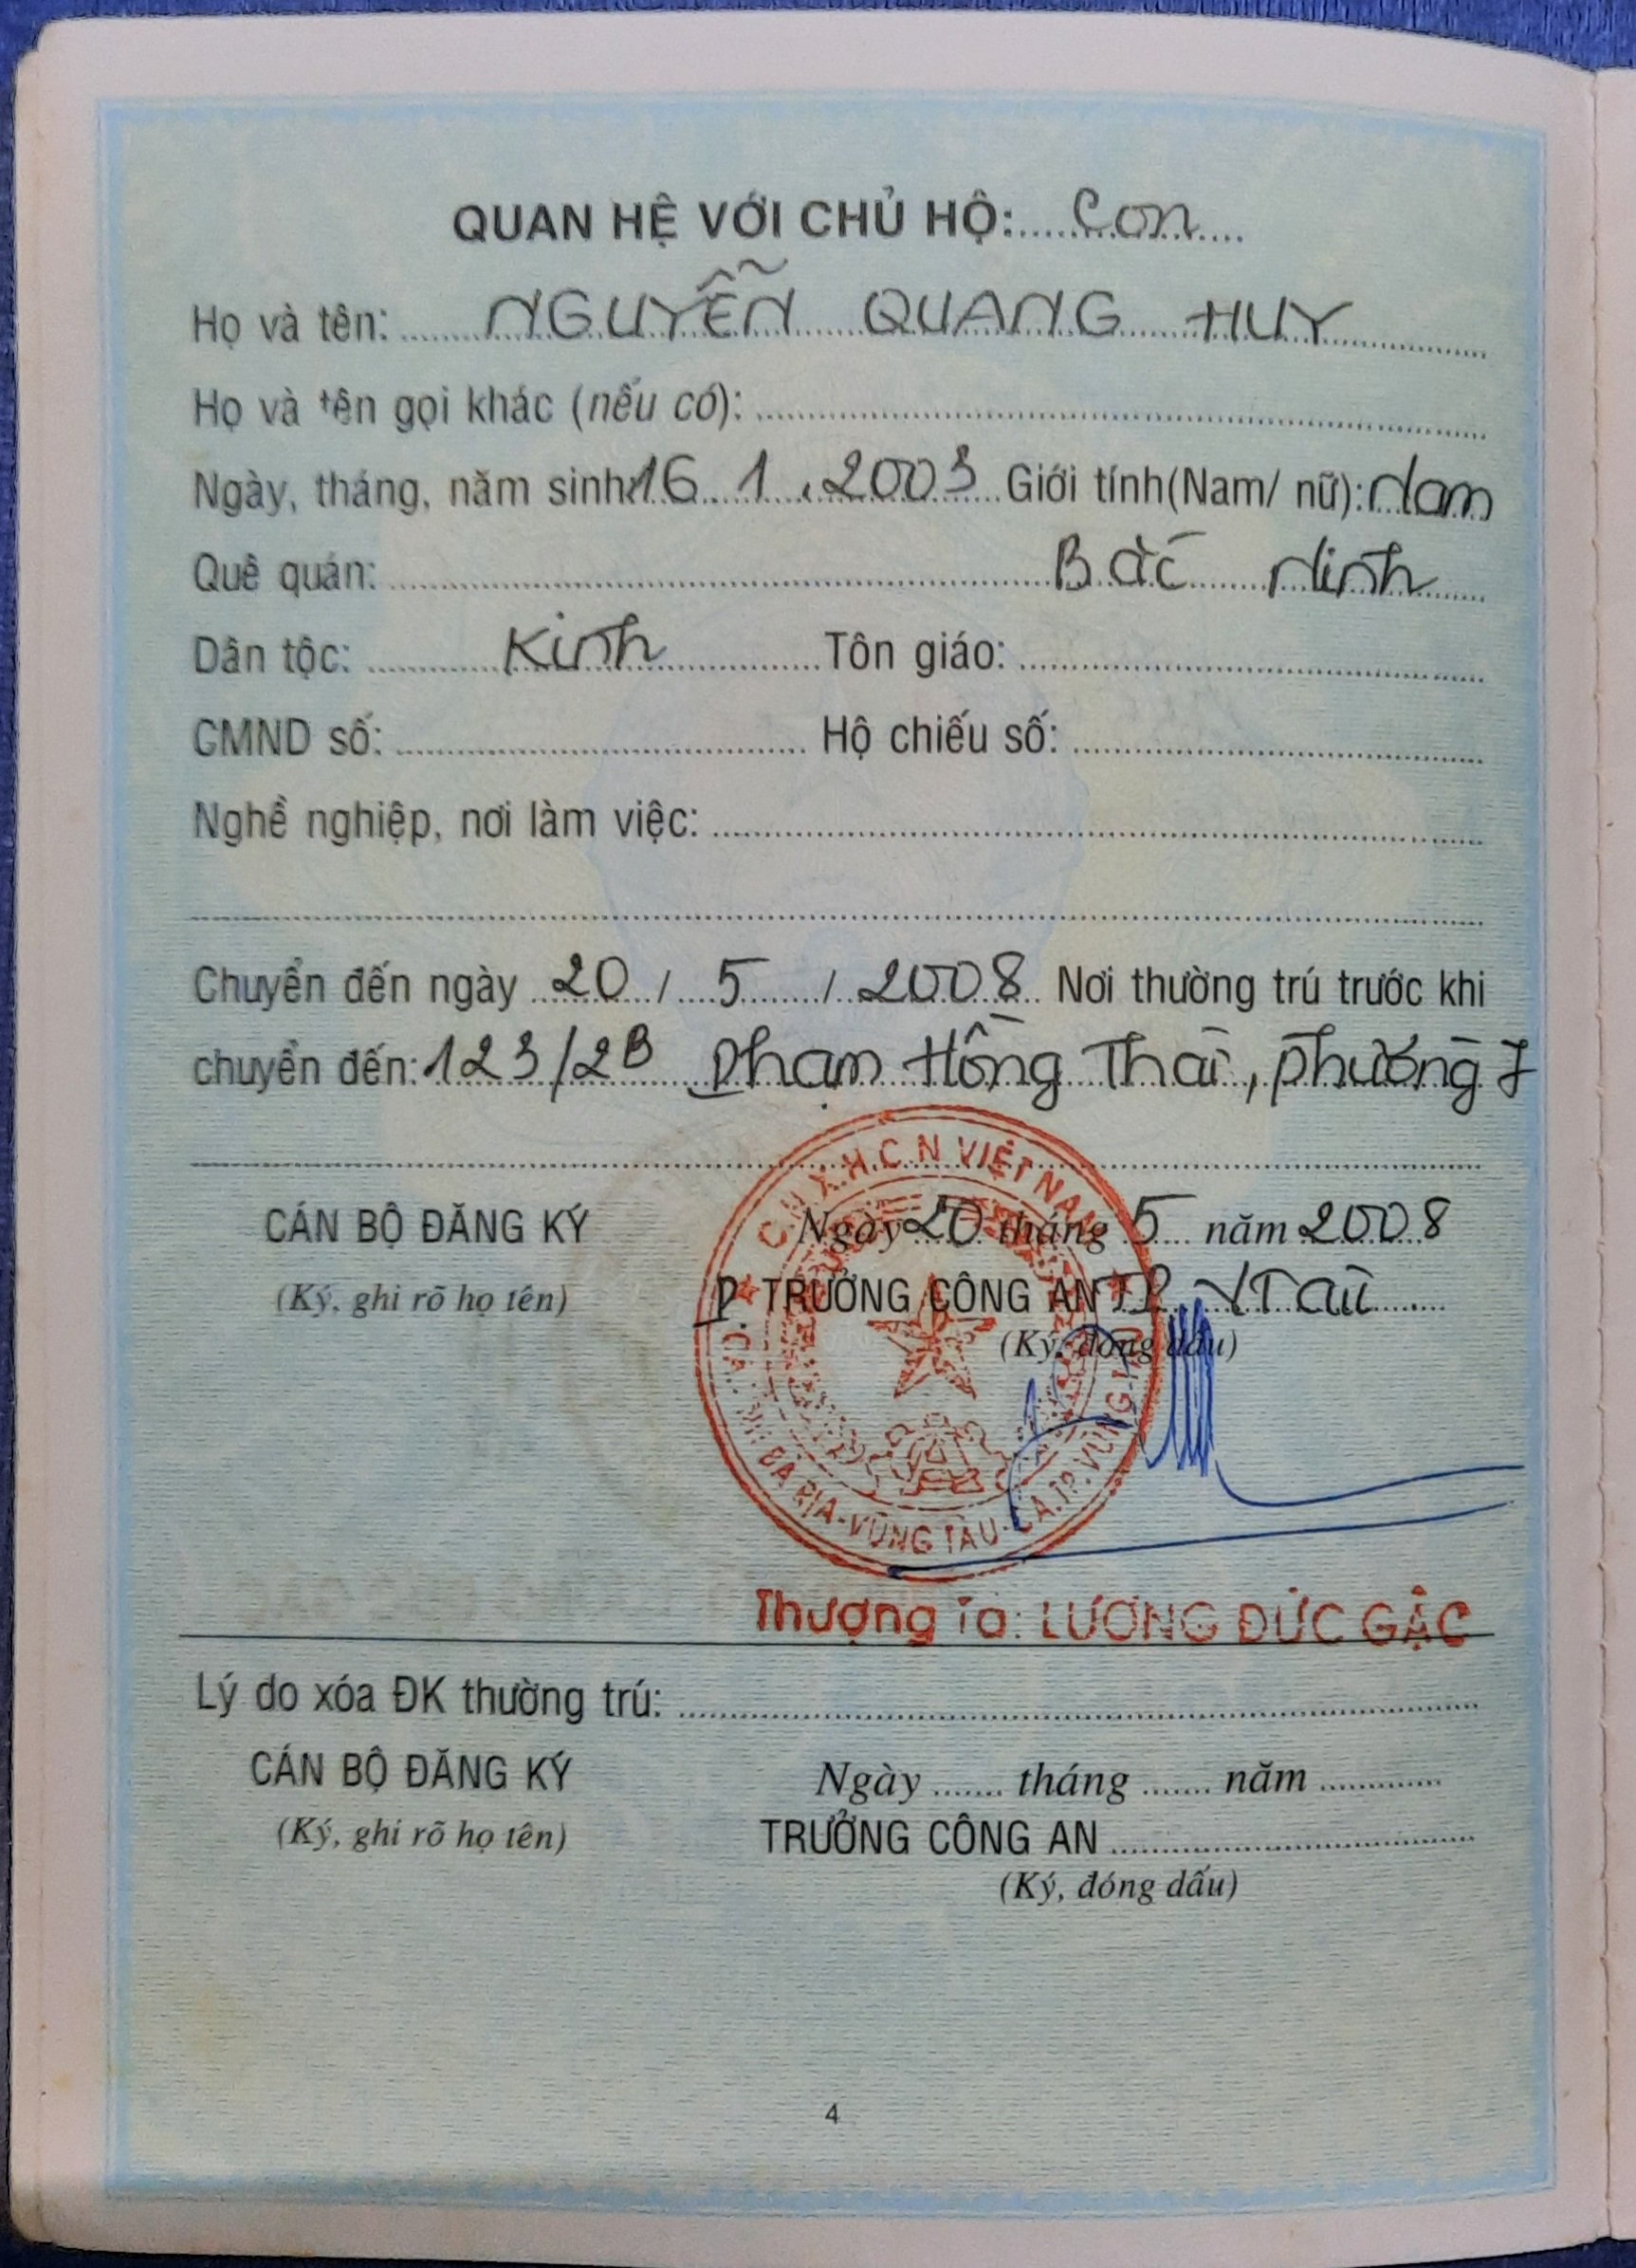 QUAN HỆ VỚI CHỦ HỘ: Con
Họ và tên: NGUYỄN QUANG HUY
Họ và tên gọi khác (nếu có):
Ngày, tháng, năm sinh: 16.1.2003 Giới tính(Nam/ nữ): Nam
Quê quán: Bắc Ninh
Dân tộc: Kinh Tôn giáo:
CMND số: Hộ chiếu số:
Nghề nghiệp, nơi làm việc:
Chuyển đến ngày 20 / 5 / 2008 Nơi thường trú trước khi
chuyển đến: 123/2B Phạm Hồng Thái, Phường 7
C.H.X.H.C.N VIỆT NAM
CÁN BỘ ĐĂNG KÝ Ngày 20 tháng 5 năm 2008
(Ký, ghi rõ họ tên) P TRƯỞNG CÔNG AN TP VTàu
(Ký, đóng dấu)
BÀ RỊA-VŨNG TÀU
Thượng Tá: LƯƠNG ĐỨC GẬC
Lý do xóa ĐK thường trú:
CÁN BỘ ĐĂNG KÝ Ngày ....... tháng ....... năm .............
(Ký, ghi rõ họ tên) TRƯỞNG CÔNG AN
(Ký, đóng dấu)
4